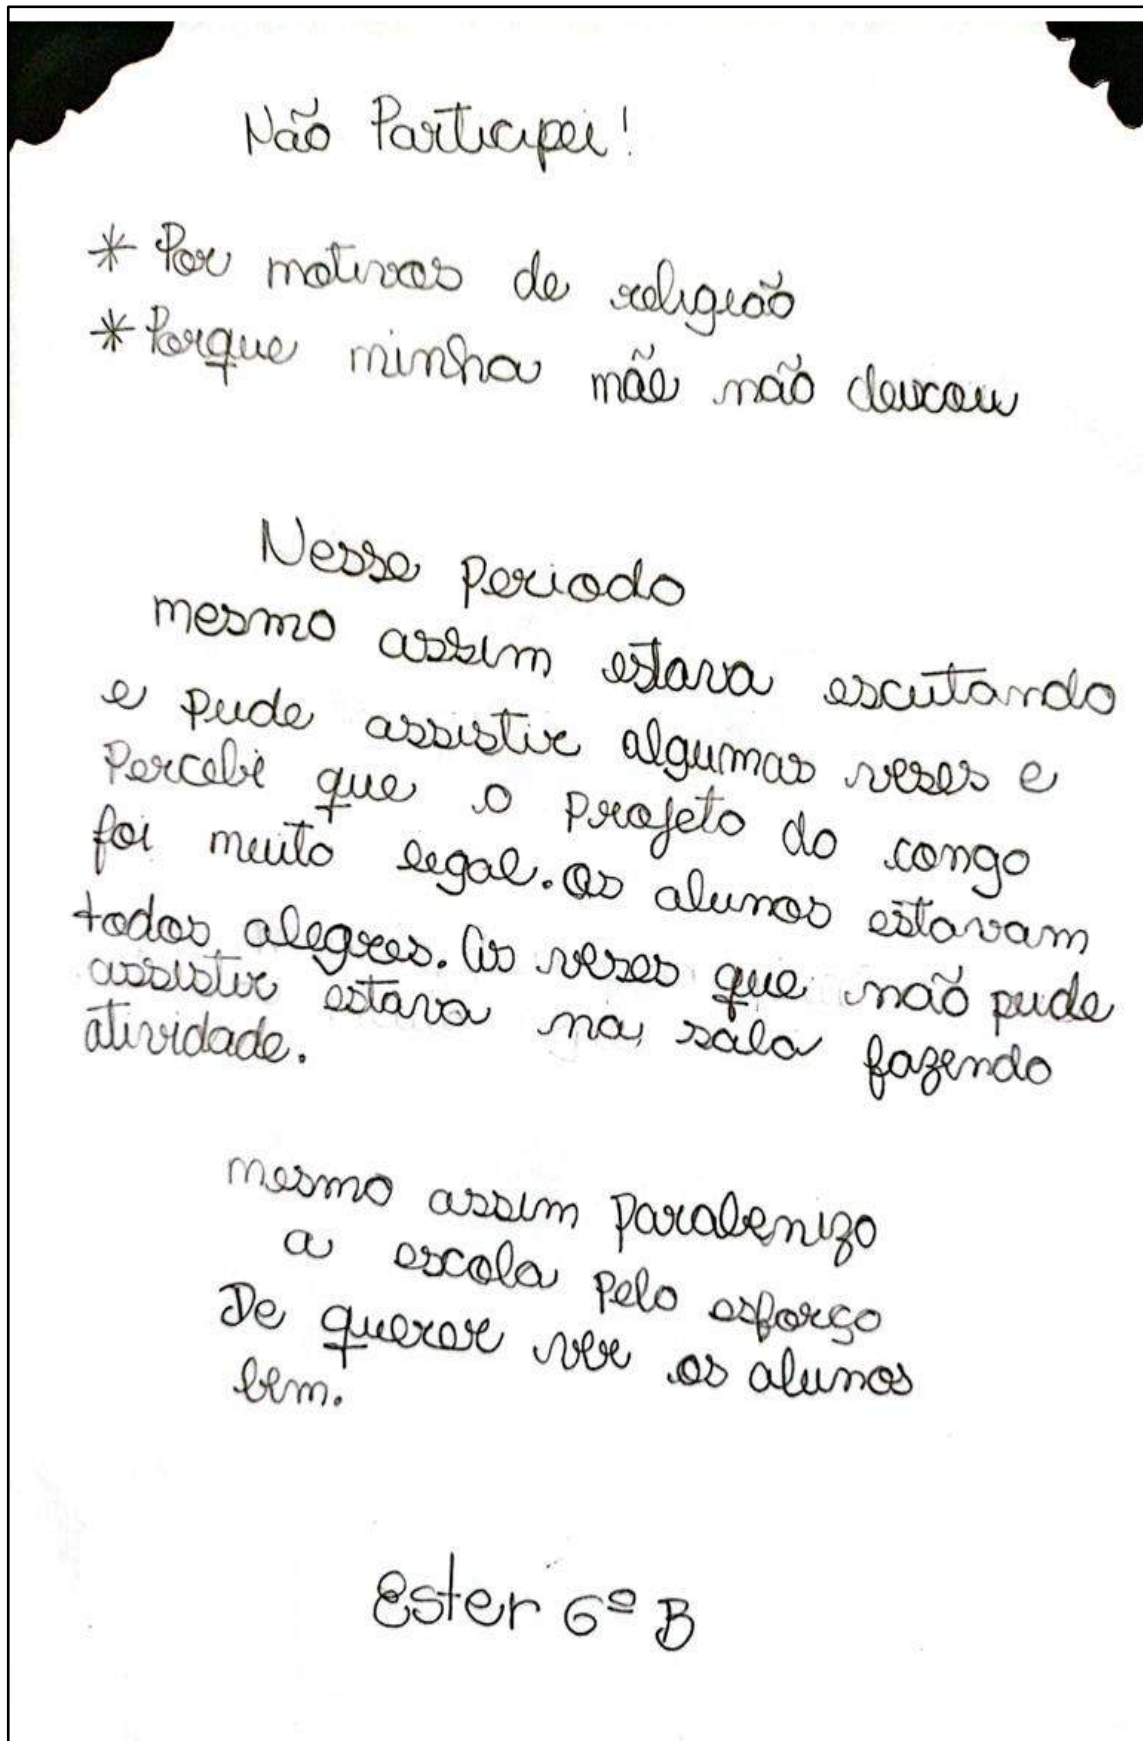 Não Participei!
* Por motivos de religião
* Porque minha mãe não deixou
Nesse Periodo
mesmo assim estava escutando
e pude assistir algumas veses e
Percebi que o Projeto do congo
foi muito legal. Os alunos estavam
todos alegres. As veses que não pude
assistir estava na sala fazendo
atividade.
mesmo assim Parabenizo
a escola Pelo esforço
De querer ver os alunos
bem.
Ester 6º B